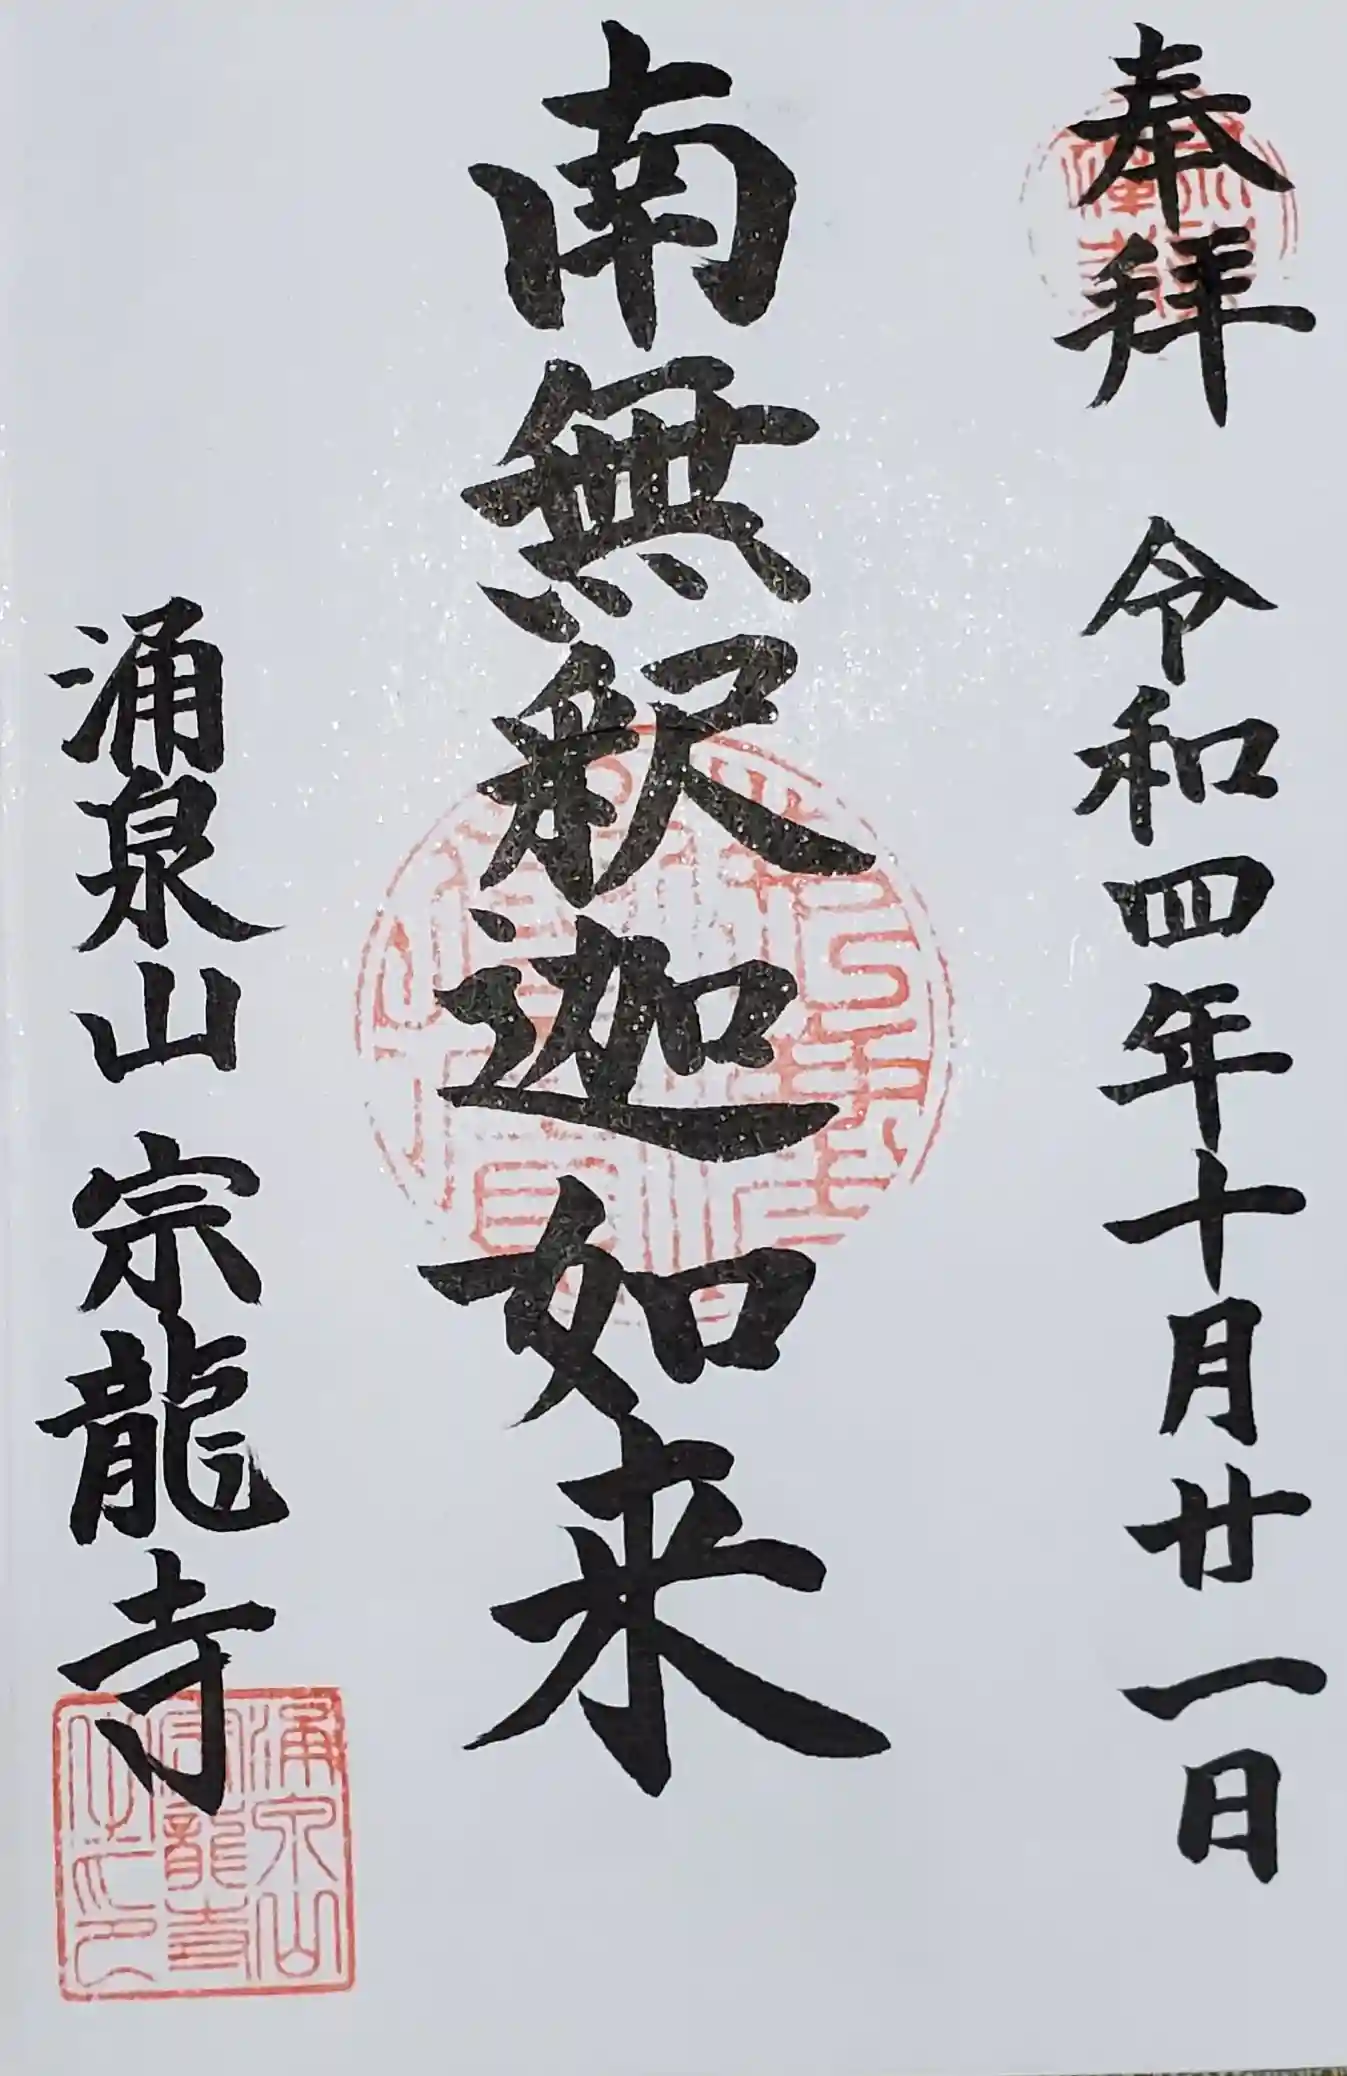 奉拝 令和四年十月廿一日
南無釈迦如来
涌泉山 宗龍寺
涌泉山
宗龍寺